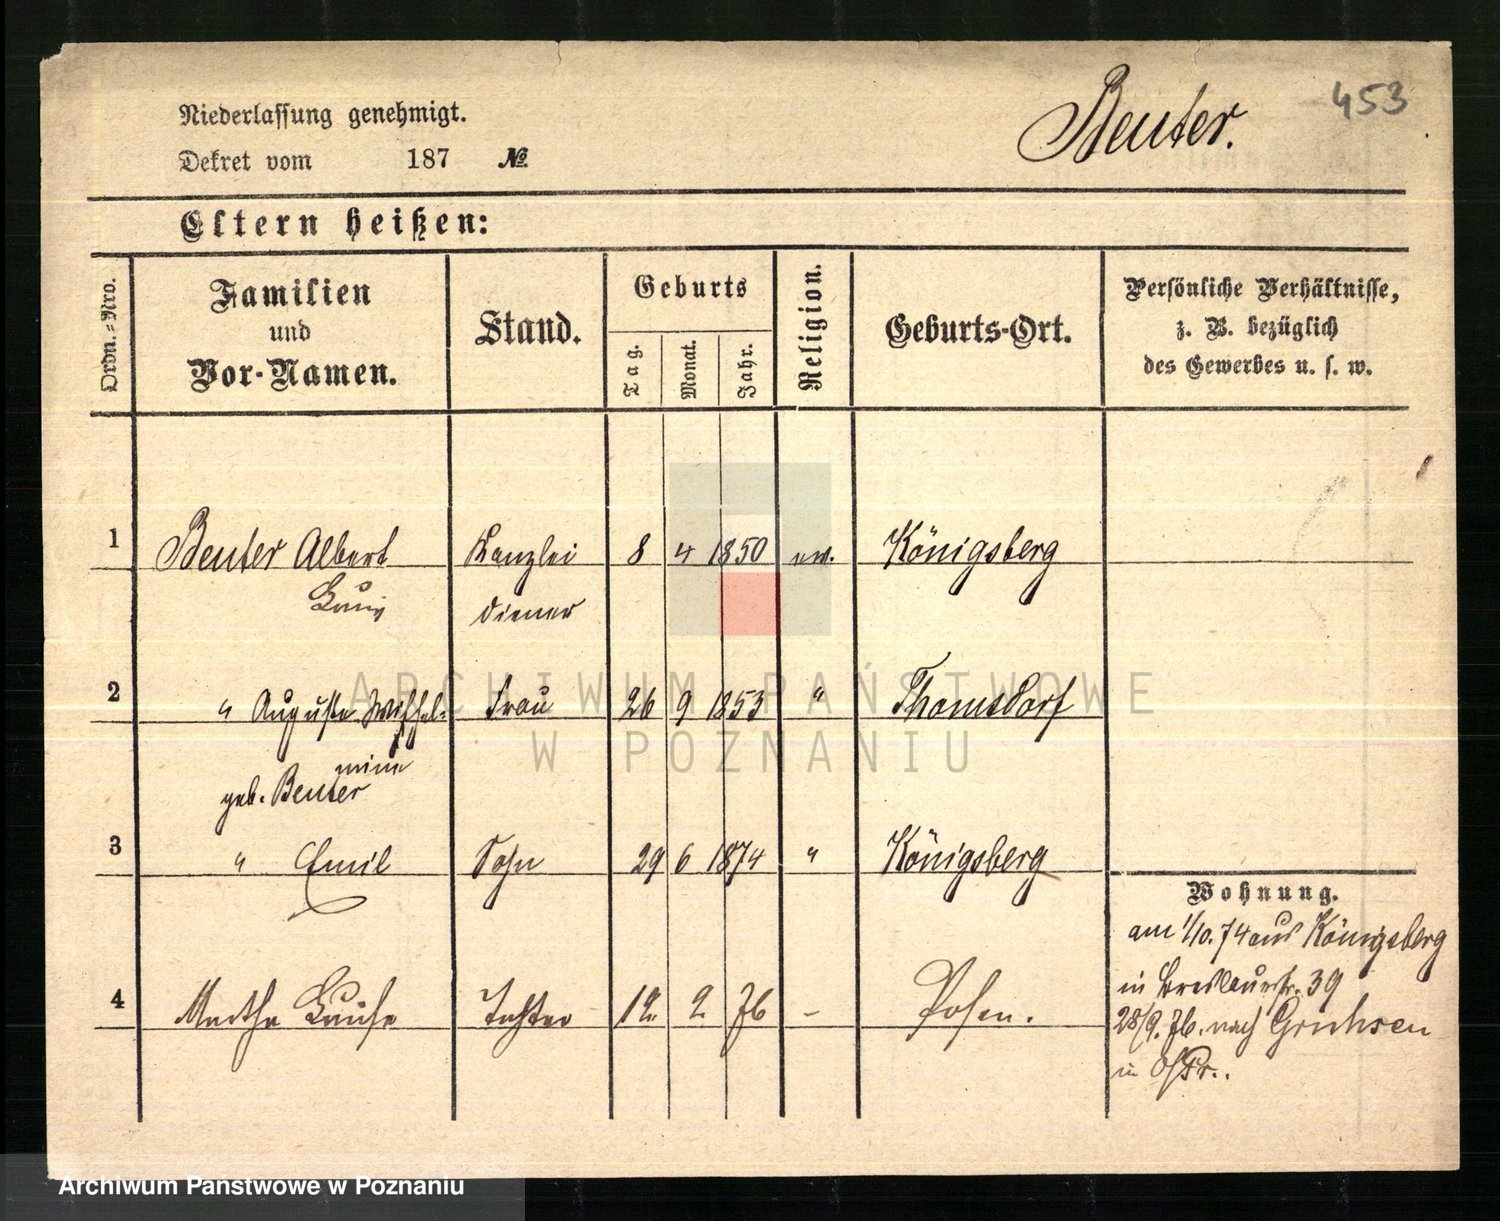 453
Beuter.
Niederlassung genehmigt.
Dekret vom 187 №
Eltern heißen:
Ordn.=Nro.
Familien und Vor-Namen.
Stand.
Geburts
Tag.
Monat.
Jahr.
Religion.
Geburts-Ort.
Persönliche Verhältnisse,
z. B. bezüglich
des Gewerbes u. s. w.
1 Beuter Albert Kanzlei 8 4 1850 ev. Königsberg
Louis diener
2 " Auguste Wilhel- Frau 26 9 1853 " Thomsdorf
mine
geb. Beuter
3 " Emil Sohn 29 6 1874 " Königsberg
4 Martha Louise Tochter 12. 2. 76 – Posen.
Wohnung.
am 1/10. 74 aus Königsberg
in Breslauerstr. 39
28/9. 76. nach
in OstPr..
ARCHIWUM PAŃSTWOWE
W POZNANIU
Archiwum Państwowe w Poznaniu